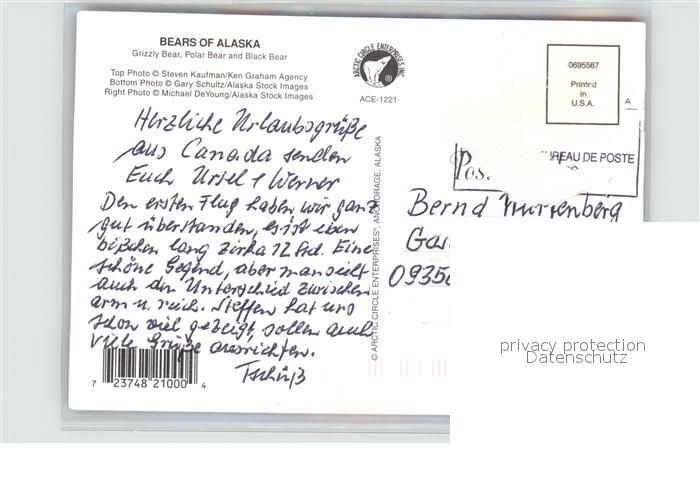 BEARS OF ALASKA
Grizzly Bear, Polar Bear and Black Bear
Top Photo © Steven Kaufman/Ken Graham Agency
Bottom Photo © Gary Schultz/Alaska Stock Images
Right Photo © Michael DeYoung/Alaska Stock Images
ARCTIC CIRCLE ENTERPRISES INC.
®
ACE-1221
0695567
Printed
in
U.S.A.
A
Herzliche Urlaubsgrüße
aus Canada senden
Euch Ursel + Werner
Den ersten Flug haben wir ganz
gut überstanden, es ist eben
bißchen lang zirka 12 Std. Eine
schöne Gegend, aber man sieht
auch den Unterschied zwischen
arm u. reich. Steffen hat uns
schon viel gezeigt, sollen auch
viele Grüße ausrichten.
Tschüß
© ARCTIC CIRCLE ENTERPRISES®, ANCHORAGE, ALASKA
Pos.
BUREAU DE POSTE
Bernd
0935
7 23748 21000 4
privacy protection
Datenschutz